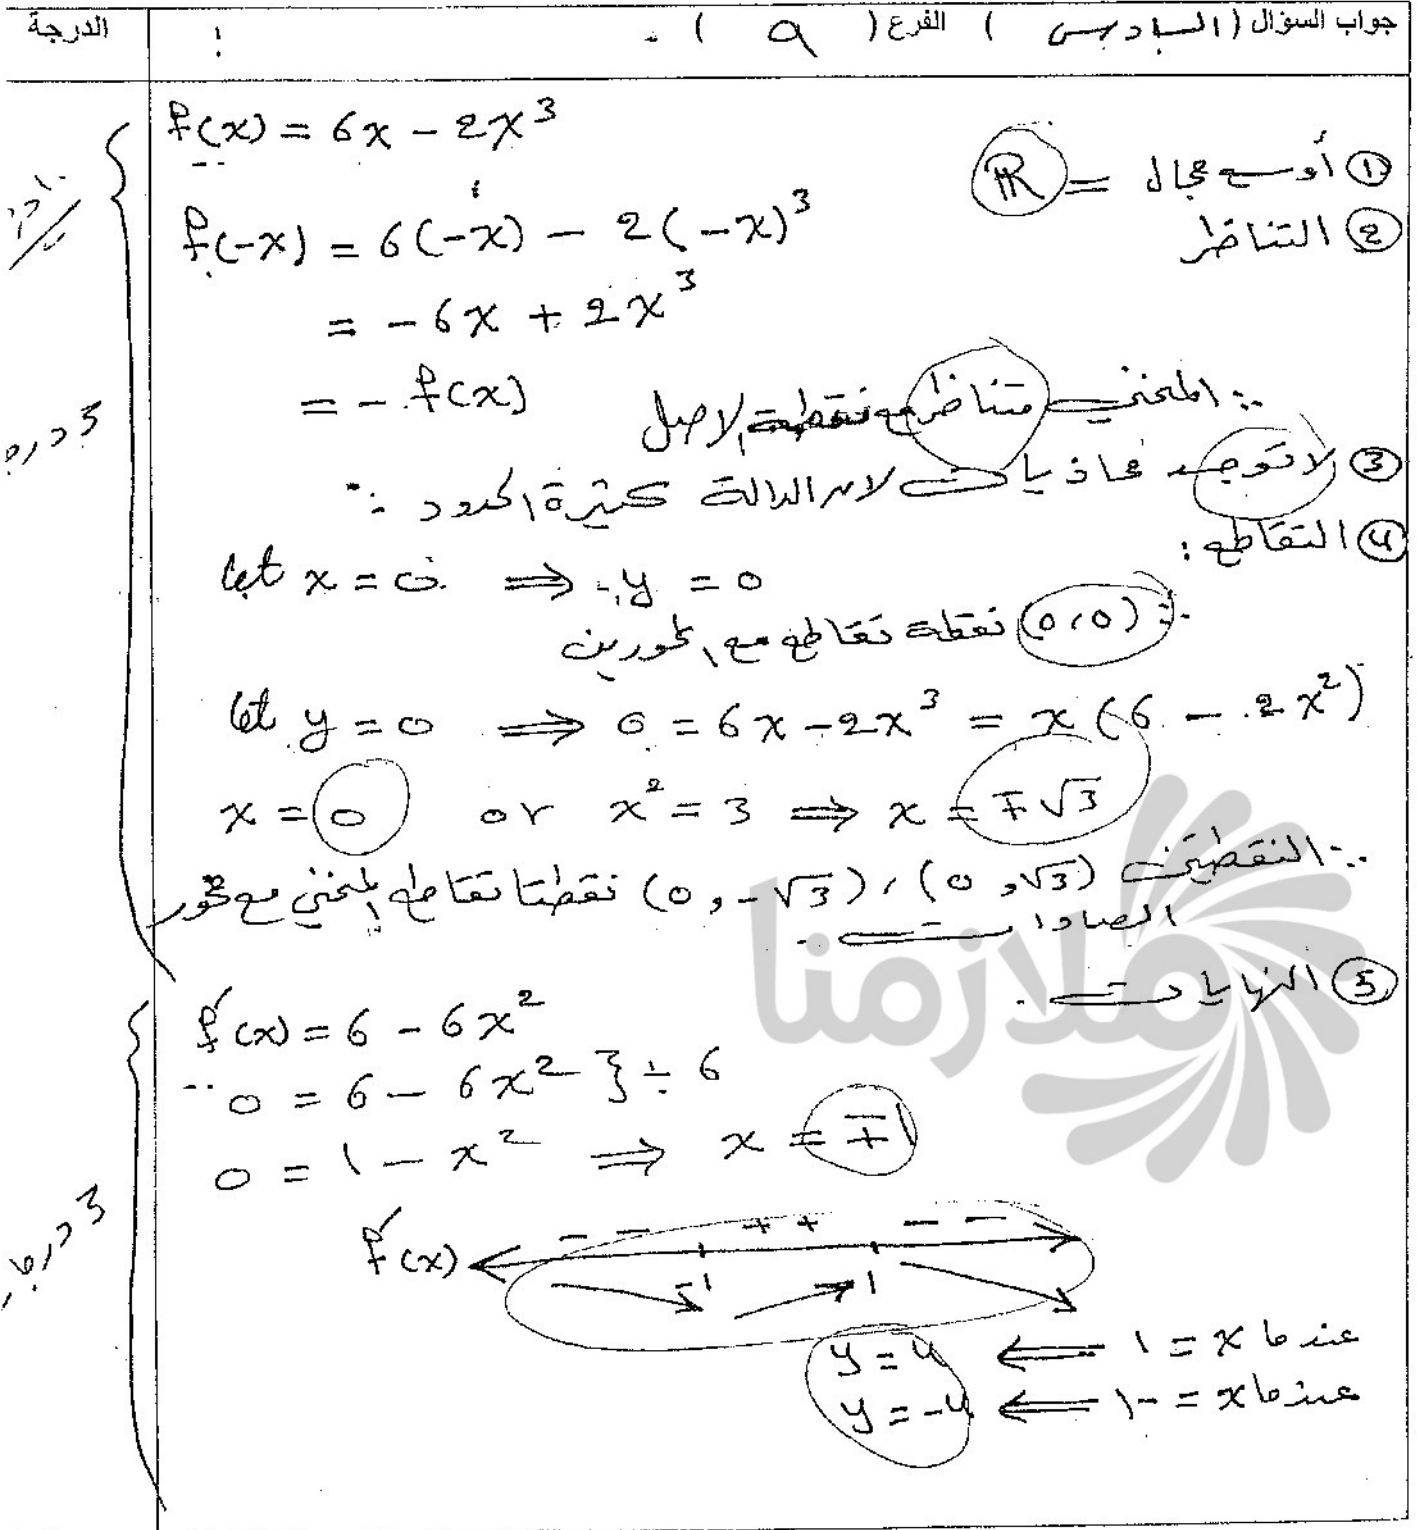 جواب السؤال ( السادس ) الفرع ( a ) . الدرجة
f(x) = 6x - 2x³
① أوسع مجال = ℝ
② التناظر
f(-x) = 6(-x) - 2(-x)³
= -6x + 2x³
= -f(x)
∴ المنحني متناظر مع نقطة الاصل
3 درجة
③ لا توجد محاذيات لان الدالة كثيرة الحدود
④ التقاطع :
let x = 0 ⟹ y = 0
∴ (0،0) نقطة تقاطع مع المحورين
let y = 0 ⟹ 0 = 6x - 2x³ = x(6 - 2x²)
x = 0 or x² = 3 ⟹ x = ∓√3
∴ النقطتين (0,√3) ، (0,-√3) نقطتا تقاطع المنحني مع محور
الصادات .
⑤ النهايات .
f́(x) = 6 - 6x²
0 = 6 - 6x² } ÷ 6
0 = 1 - x² ⟹ x = ∓1
3 درجة
f́(x) - - + + - -
-1 1
عندما x = 1 ⟸ y = 4
عندما x = -1 ⟸ y = -4
ملازمنا